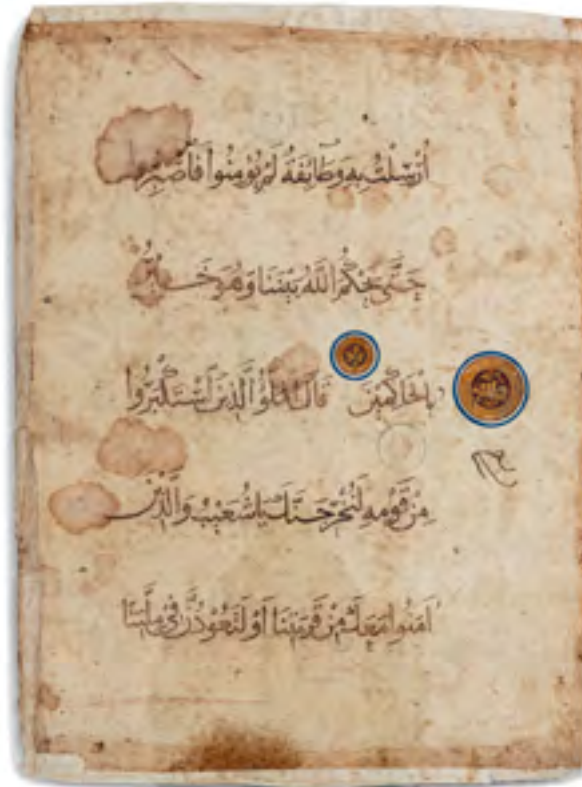 أُرْسِلْتُ بِهِ وَطَائِفَةٌ لَمْ يُؤْمِنُوا فَاصْبِرُوا
حَتَّى يَحْكُمَ اللَّهُ بَيْنَنَا وَهُوَ خَيْرُ
الْحَاكِمِينَ قَالَ الْمَلَأُ الَّذِينَ اسْتَكْبَرُوا
مِنْ قَوْمِهِ لَنُخْرِجَنَّكَ يَا شُعَيْبُ وَالَّذِينَ
آمَنُوا مَعَكَ مِنْ قَرْيَتِنَا أَوْ لَتَعُودُنَّ فِي مِلَّتِنَا